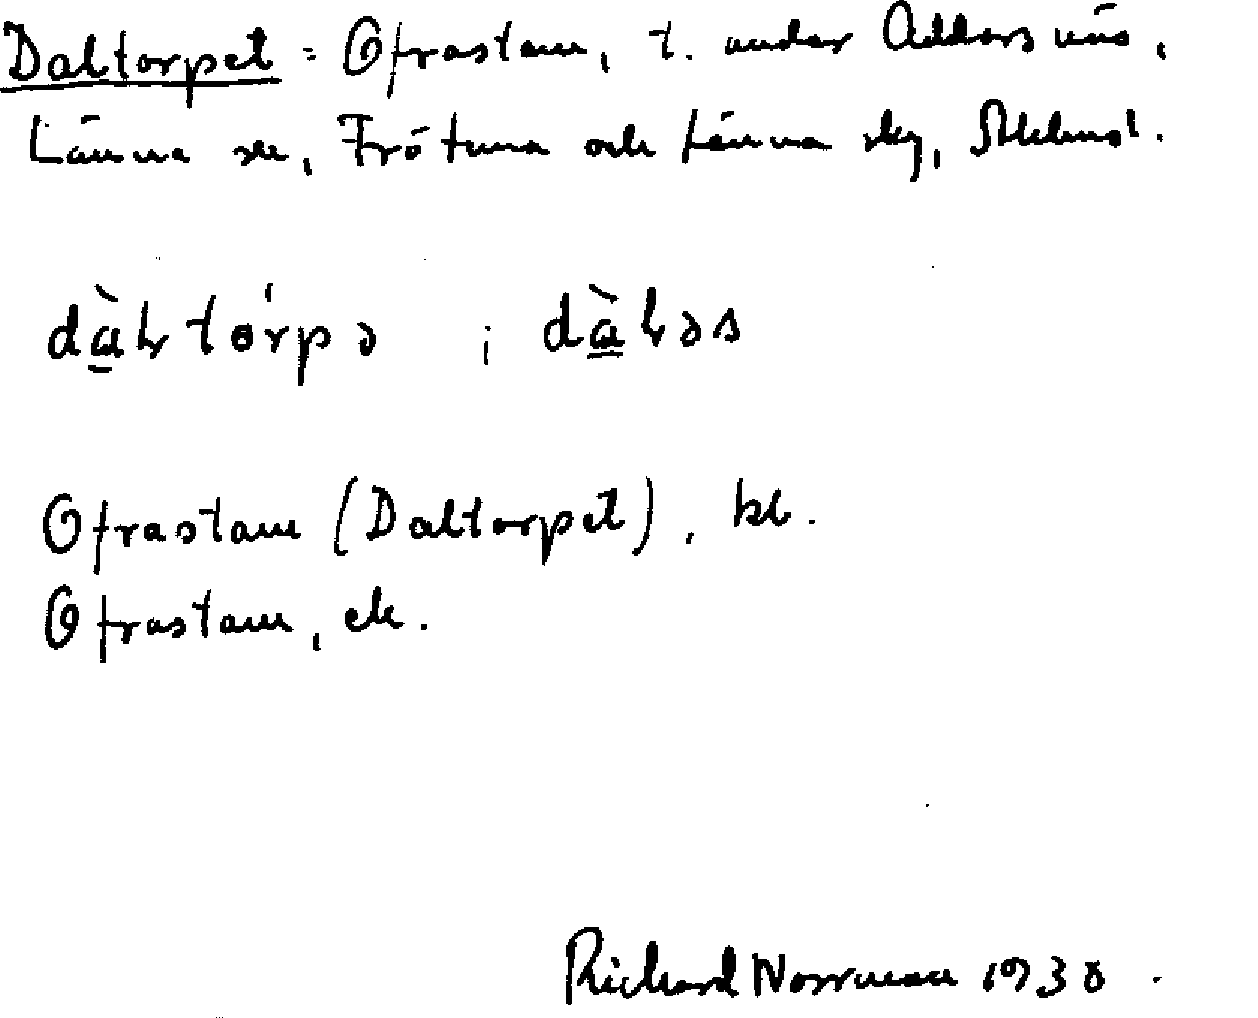 Daltorpet = Ofrastam, t. under Addarsnäs,
Länna sn, Frötuna och Länna skg, Sthlms l.
dàltórpə ; dàləs
Ofrastam (Daltorpet), bl.
Ofrastam, ek.
Richard Norrman 1930.